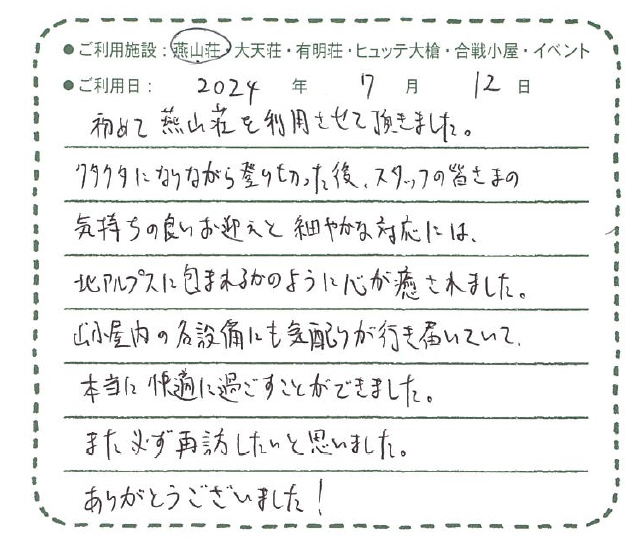 ●ご利用施設：燕山荘・大天荘・有明荘・ヒュッテ大槍・合戦小屋・イベント
●ご利用日： 2024 年 7 月 12 日
初めて燕山荘を利用させて頂きました。
クタクタになりながら登りきった後、スタッフの皆さまの
気持ちの良いお迎えと細やかな対応には、
北アルプスに包まれるかのように心が癒されました。
山小屋内の各設備にも気配りが行き届いていて、
本当に快適に過ごすことができました。
また必ず再訪したいと思いました。
ありがとうございました！